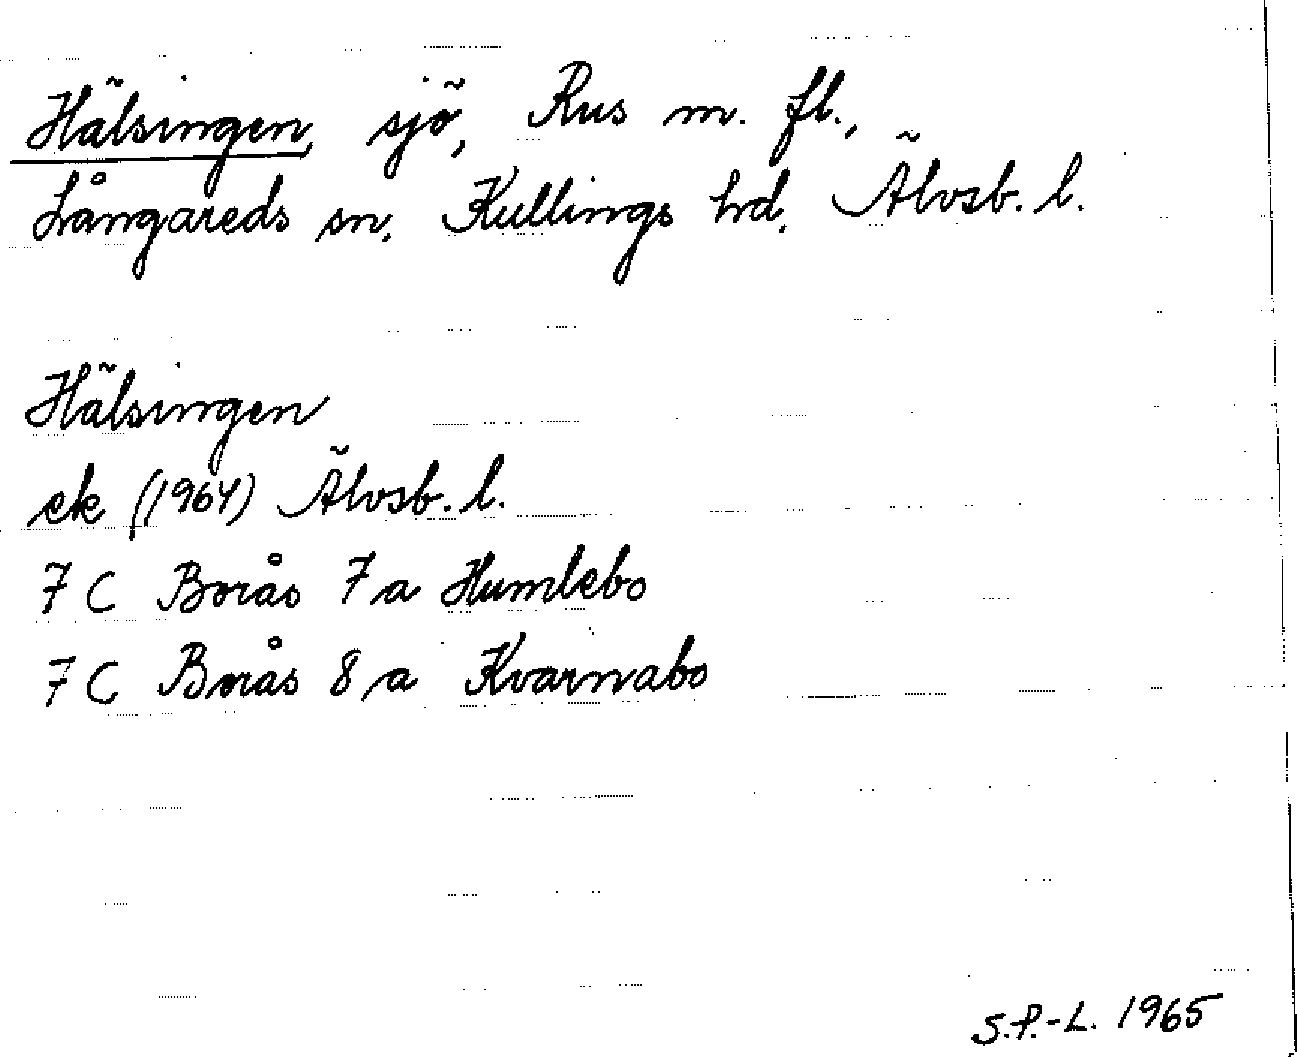 Hälsingen, sjö, Rus m. fl.,
Långareds sn. Kullings hd. Älvsb. l.
Hälsingen
ek (1964) Älvsb. l.
7 C Borås 7 a Humlebo
7 C Borås 8 a Kvarnabo
S.P.-L. 1965